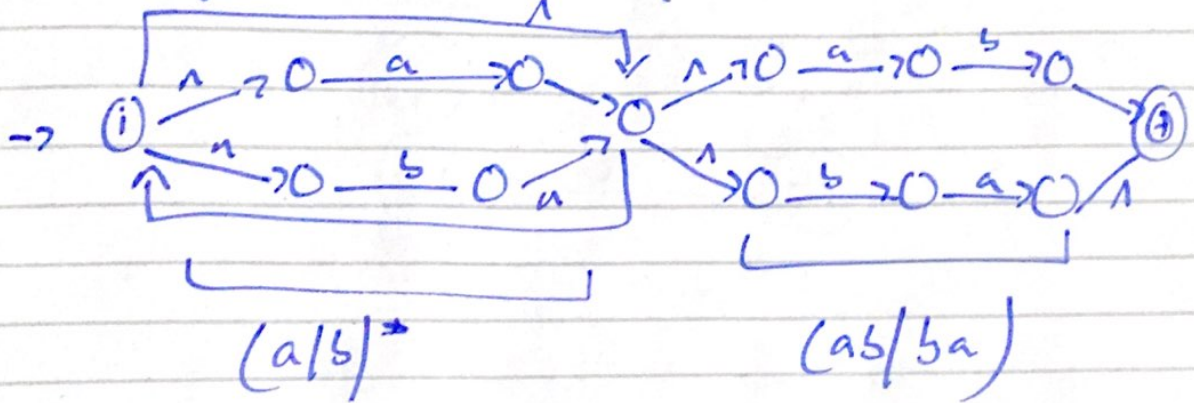 Λ
Λ a Λ a b
→ i +
Λ b Λ Λ b a Λ
(a/b)* (ab/ba)